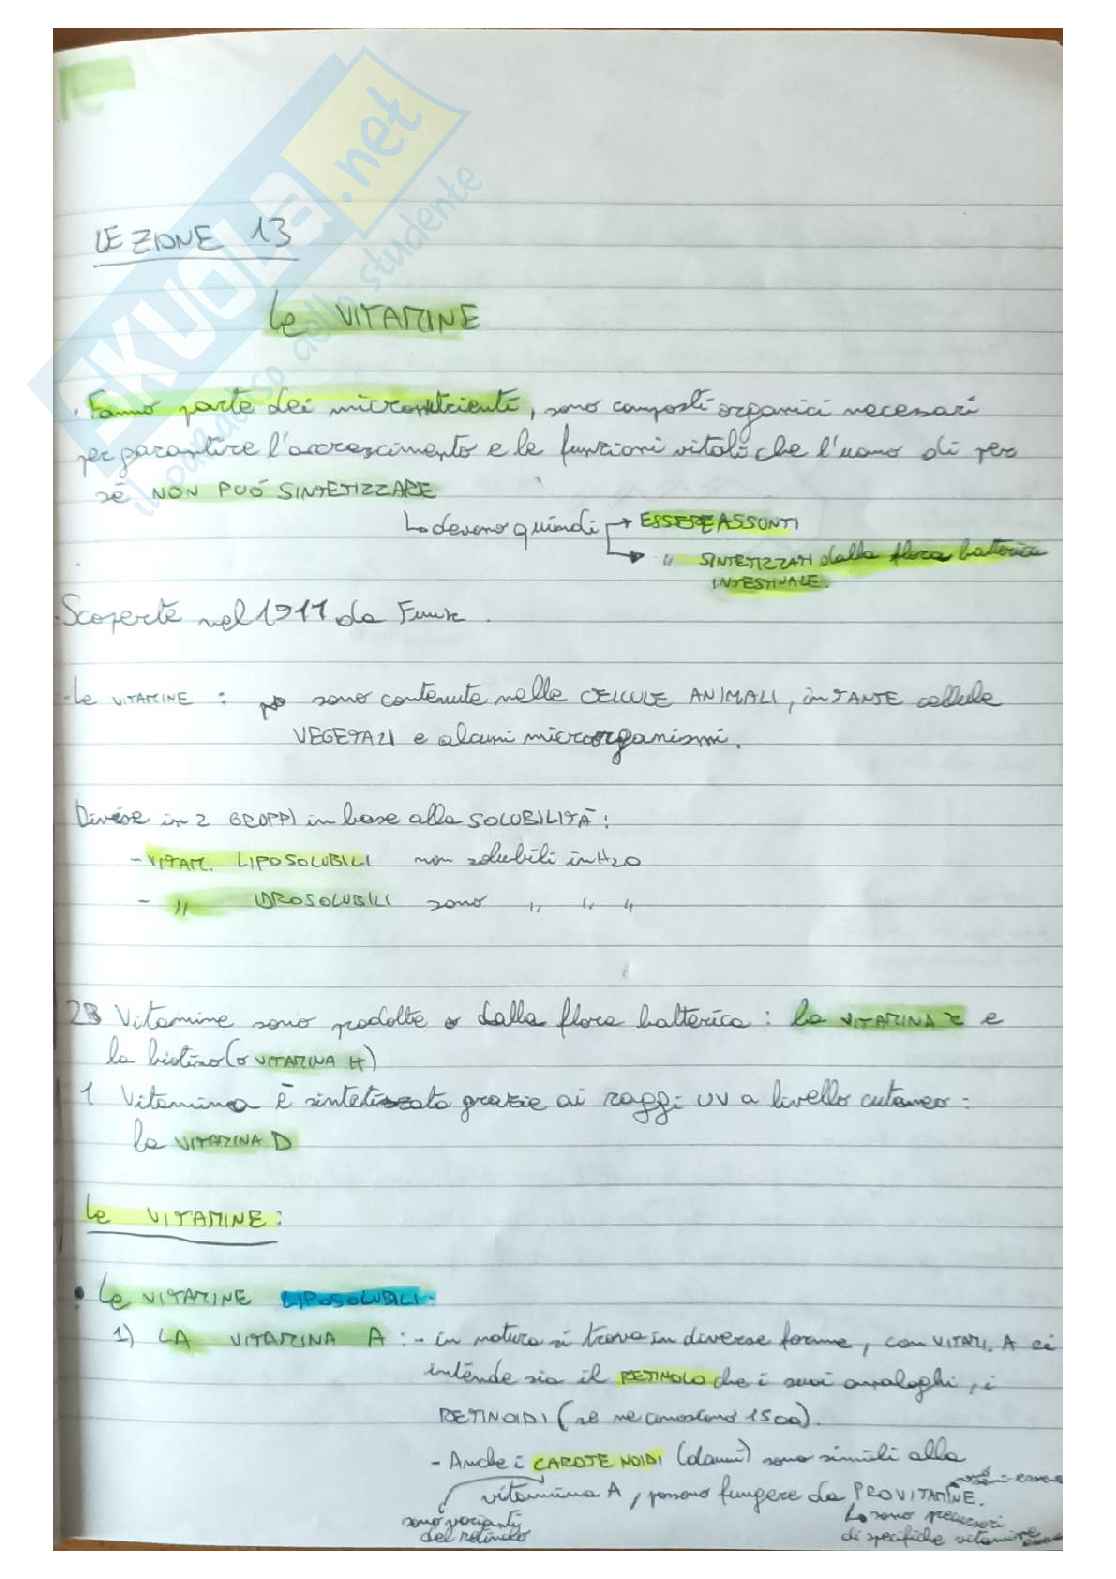 SKUOLA.net
il paradiso dello studente
LEZIONE 13
Le VITAMINE
. Fanno parte dei micronutrienti, sono composti organici necessari
per garantire l'accrescimento e le funzioni vitali che l'uomo di per
sé NON PUÓ SINTETIZZARE
↳ devono quindi → ESSERE ASSUNTI
→ " SINTETIZZATI dalla flora batterica
INTESTINALE.
. Scoperte nel 1911 da Funk.
- Le VITAMINE : sono contenute nelle CELLULE ANIMALI, in TANTE cellule
VEGETALI e alcuni microrganismi.
Divise in 2 GRUPPI in base alla SOLUBILITÀ :
- VITAM. LIPOSOLUBILI non solubili in H2O
- " IDROSOLUBILI sono " " "
2 Vitamine sono prodotte dalla flora batterica : la VITAMINA e
la biotina (o VITAMINA H)
1 Vitamina è sintetizzata grazie ai raggi UV a livello cutaneo :
la VITAMINA D
Le VITAMINE :
• Le VITAMINE LIPOSOLUBILI:
1) LA VITAMINA A : - in natura si trova in diverse forme, con VITAM. A ci
intende sia il RETINOLO che i suoi analoghi, i
RETINOIDI (se ne conoscono 1500).
- Anche i CAROTENOIDI (alcuni) sono simili alla
vitamina A, possono fungere da PROVITAMINE.
sono varianti
del retinolo
↳ sono precursori
di specifiche vitamine